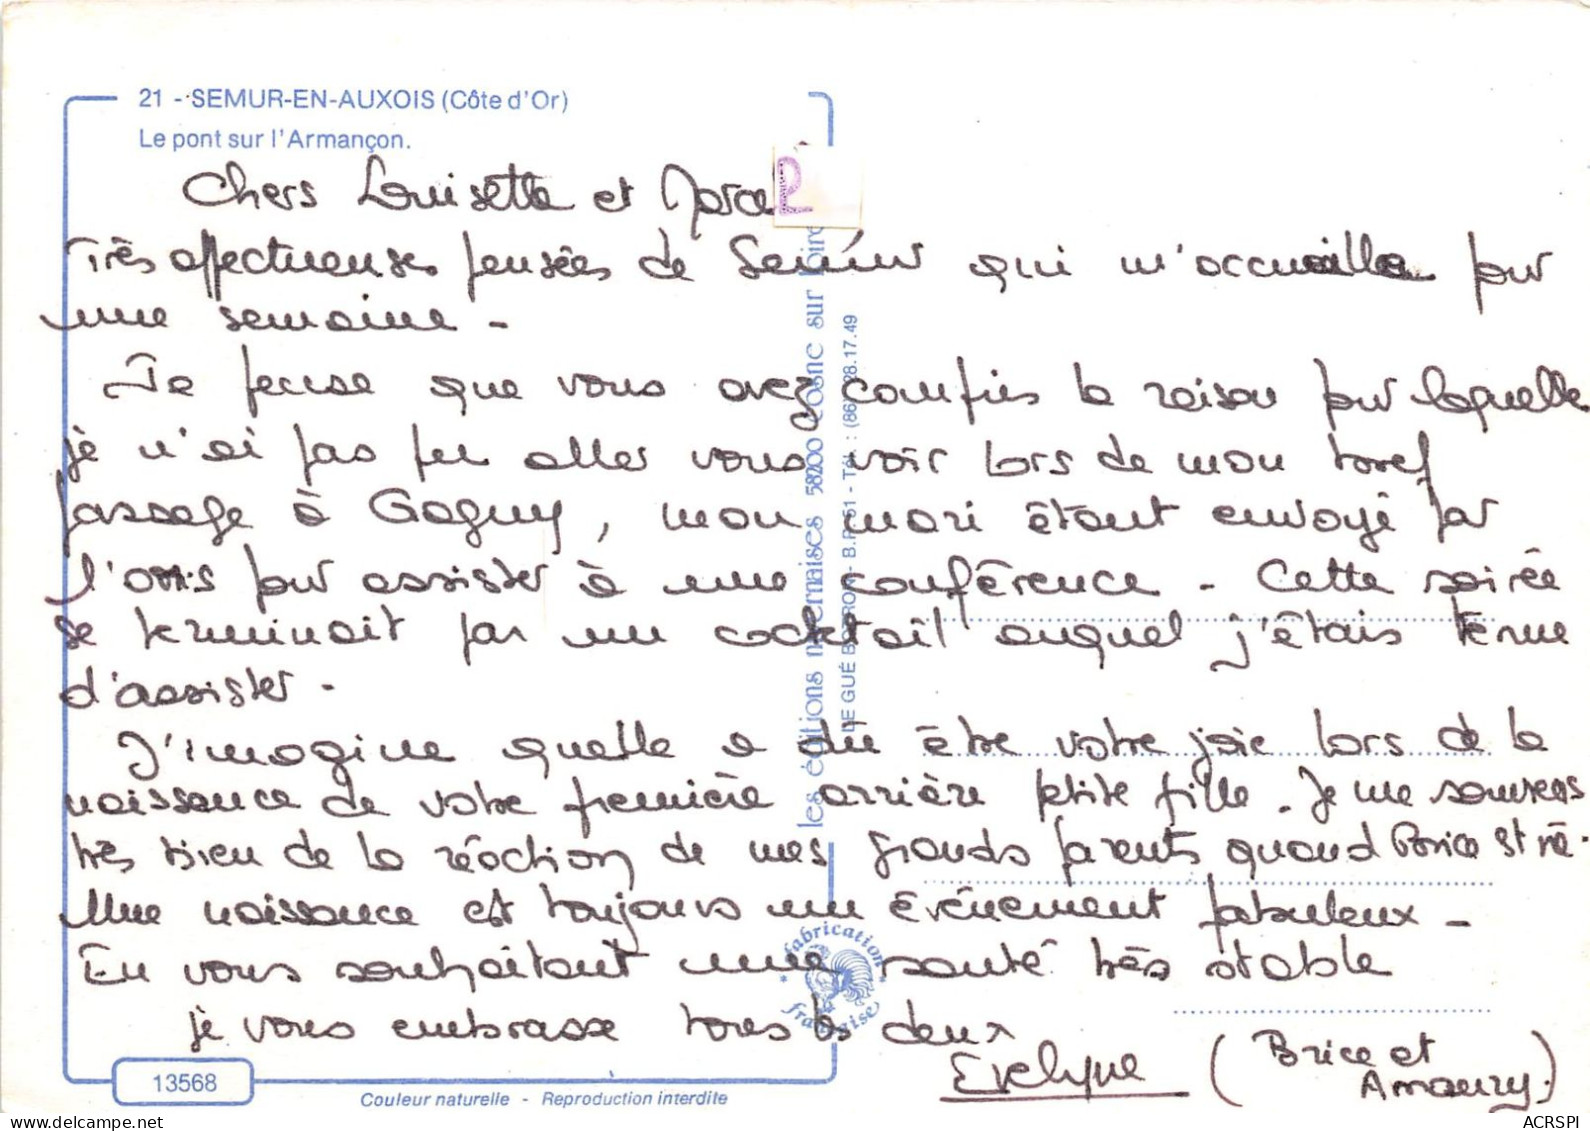 21 - SEMUR-EN-AUXOIS (Côte d'Or)
Le pont sur l'Armançon.
Chers Louisette et Marce
2
Très affectueuses pensées de Semur qui m'accueille pour
une semaine -
Je pense que vous avez compris la raison pour laquelle
je n'ai pas pu aller vous voir lors de mon bref
passage à Gagny, mon mari étant envoyé par
l'oms pour assister à une conférence - Cette soirée
se terminait par un cocktail auquel j'étais tenue
d'assister -
J'imagine quelle a dû être votre joie lors de la
naissance de votre première arrière petite fille. Je me souviens
très bien de la réaction de mes grands parents quand Brice st né.
Une naissance est toujours un événement fabuleux -
En vous souhaitant une santé très stable
je vous embrasse tous les deux
Evelyne (Brice et
Amaury.)
les éditions nivernaises 58200 cosne sur loire
LE GUÉ B.P. 51 - Tél. : (86) 28.17.49
fabrication
française
13568
Couleur naturelle - Reproduction interdite
ACRSPI